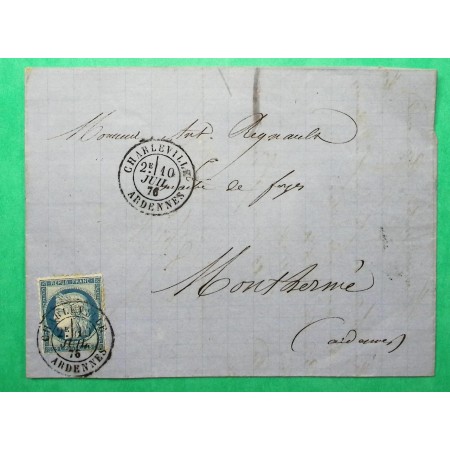 Monsieur Ant. Regnault
CHARLEVILLE
2E 10
JUIL.
76
ARDENNES
de forges
Monthermé
(ardennes)
REPUB. FRANC.
CHARLEVILLE
JUIL.
76
ARDENNES